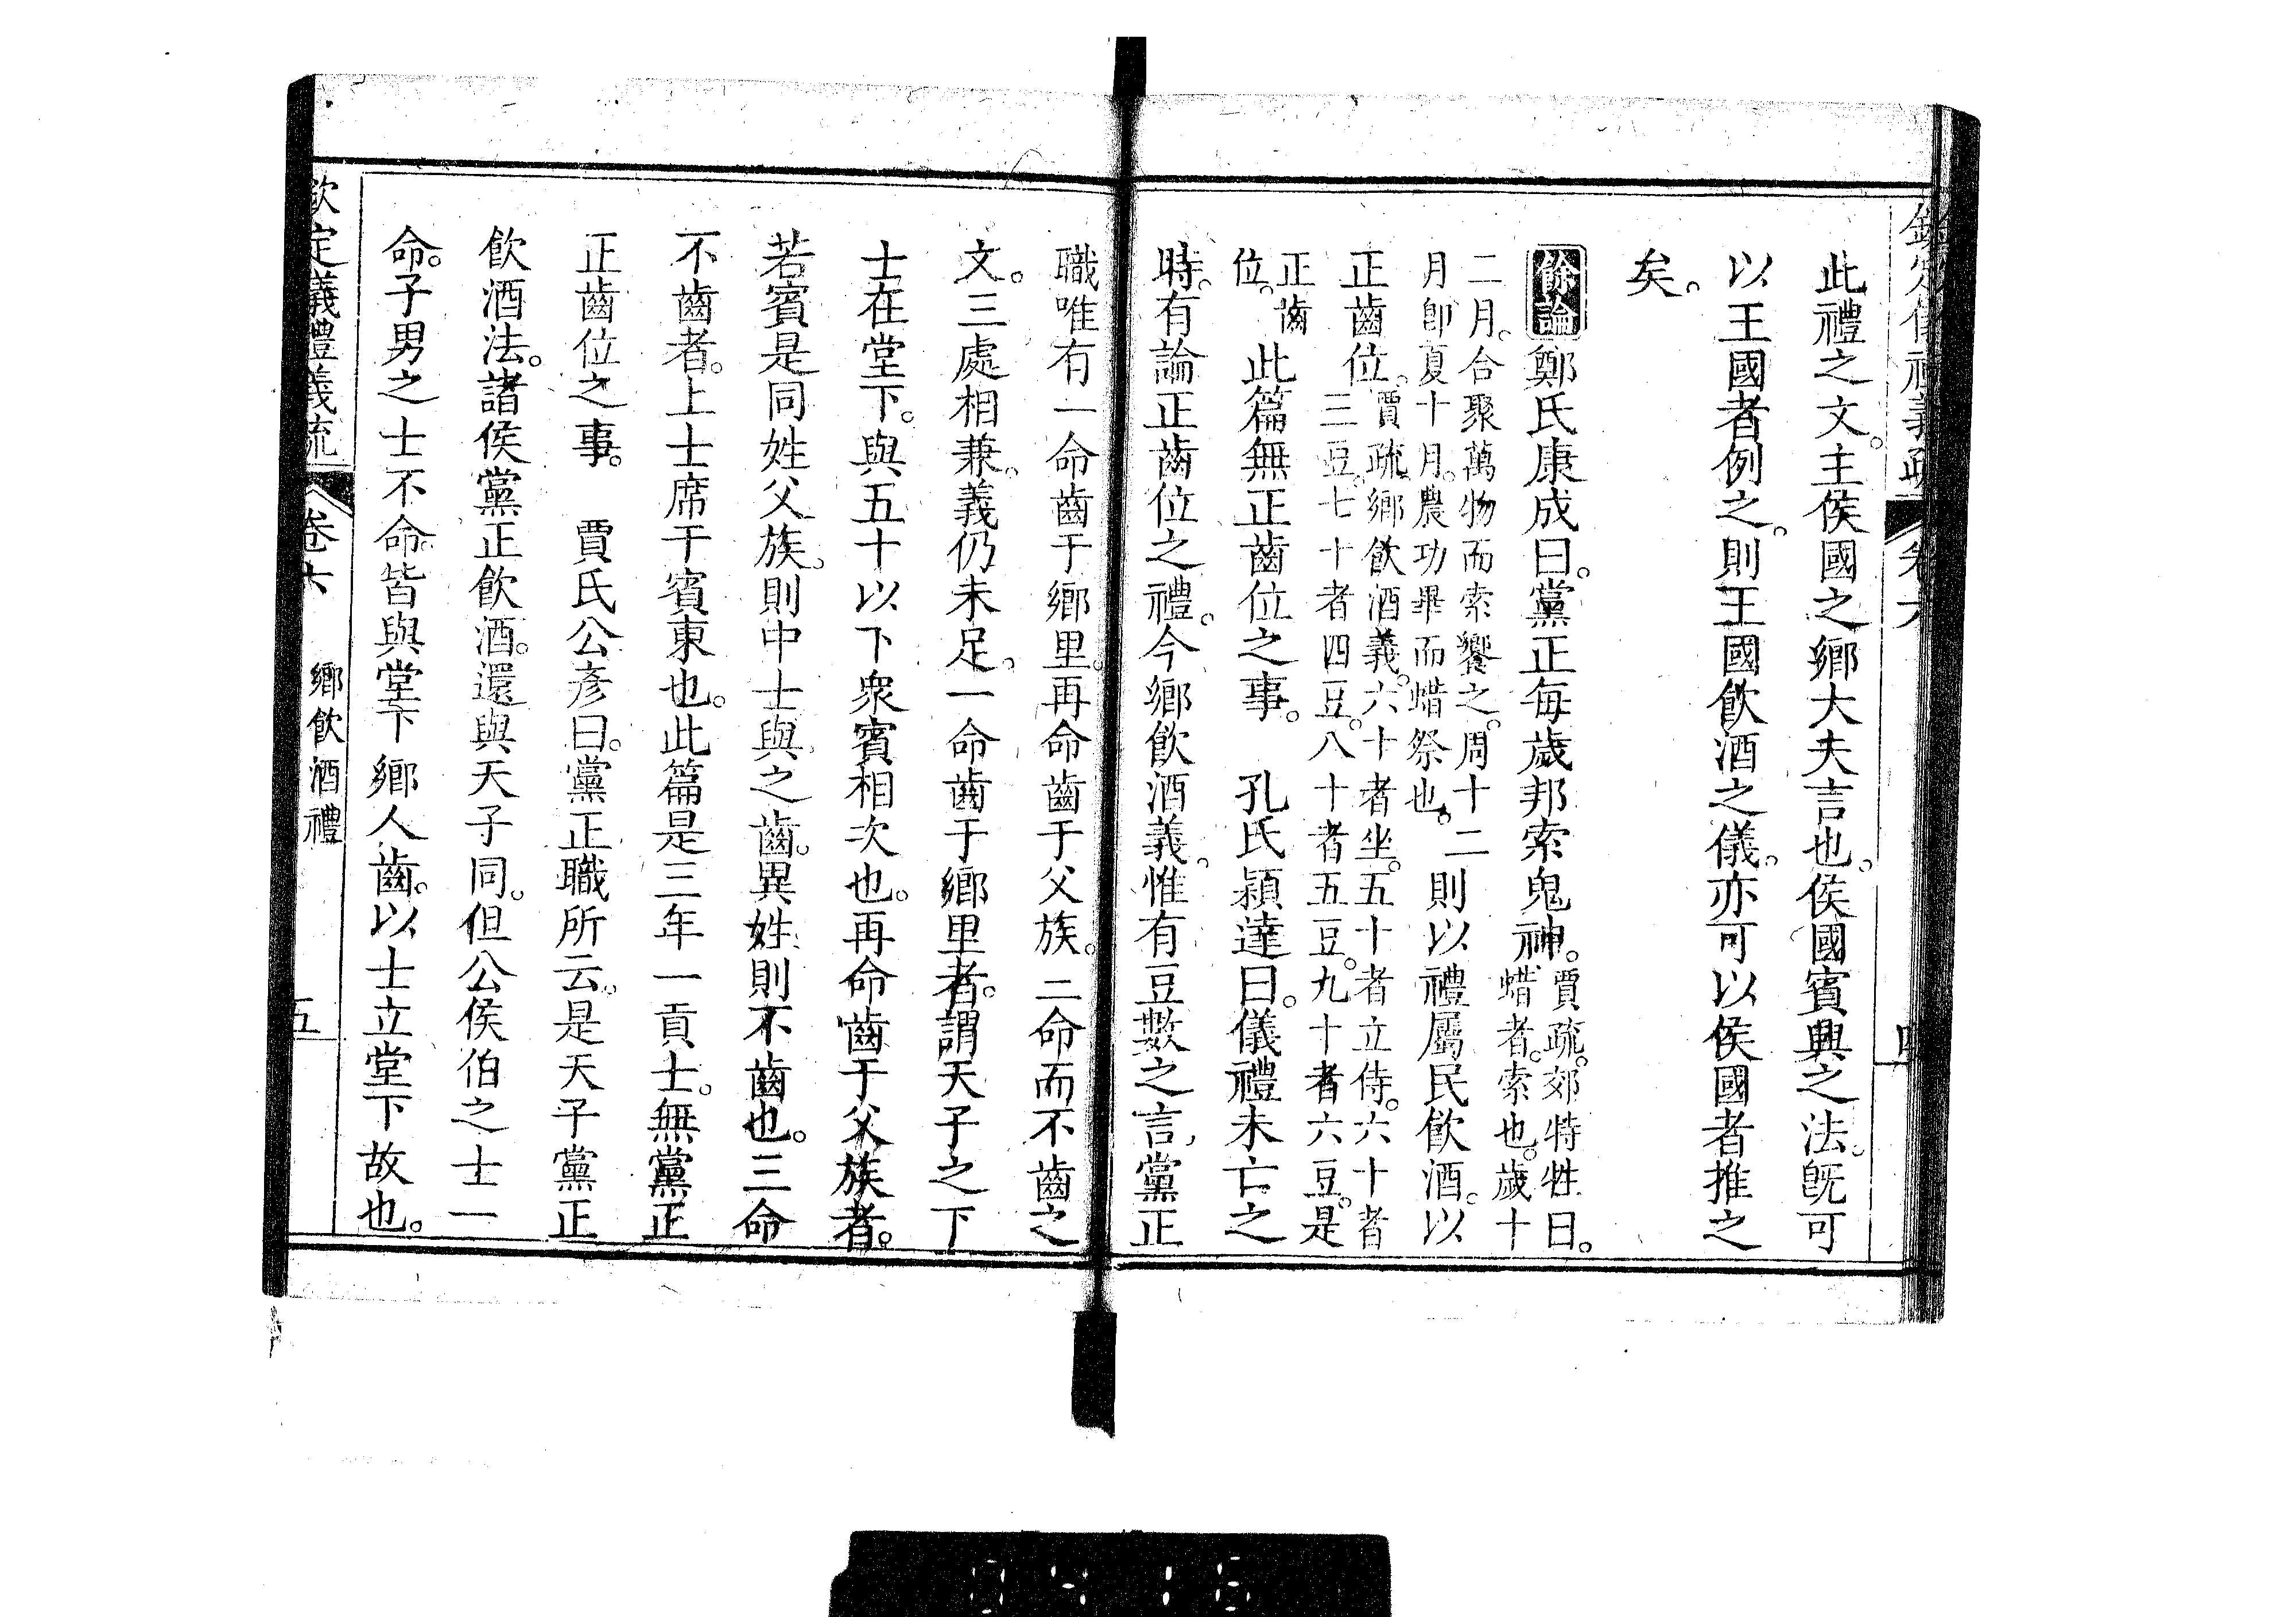 此禮之文。主侯國之鄉大夫言也。侯國賓興之法。旣可
以王國者例之。則王國飮酒之儀。亦可以侯國者推之
矣。
餘論 鄭氏康成曰。黨正每歲邦索鬼神。賈疏。郊特牲曰。
蜡者。索也。歲十
二月。合聚萬物而索饗之。周十二
月卽夏十月。農功畢而蜡祭也。
則以禮屬民飮酒。以
正齒位。賈疏。鄉飮酒義。六十者坐。五十者立侍。六十者
三豆。七十者四豆。八十者五豆。九十者六豆。是
正齒
位。
此篇無正齒位之事。 孔氏穎達曰。儀禮未亡之
時。有論正齒位之禮。今鄉飮酒義。惟有豆數之言。黨正
職唯有一命齒于鄉里。再命齒于父族。三命而不齒之
文。三處相兼。義仍未足。一命齒于鄉里者。謂天子之下
士在堂下。與五十以下衆賓相次也。再命齒于父族者。
若賓是同姓父族。則中士與之齒。異姓則不齒也。三命
不齒者。上士席于賓東也。此篇是三年一貢士。無黨正
正齒位之事。 賈氏公彥曰。黨正職所云。是天子黨正
飮酒法。諸侯黨正飮酒。還與天子同。但公侯伯之士一
命。子男之士不命。皆與堂下鄉人齒。以士立堂下故也。
欽定儀禮義疏 卷六 鄉飮酒禮 五